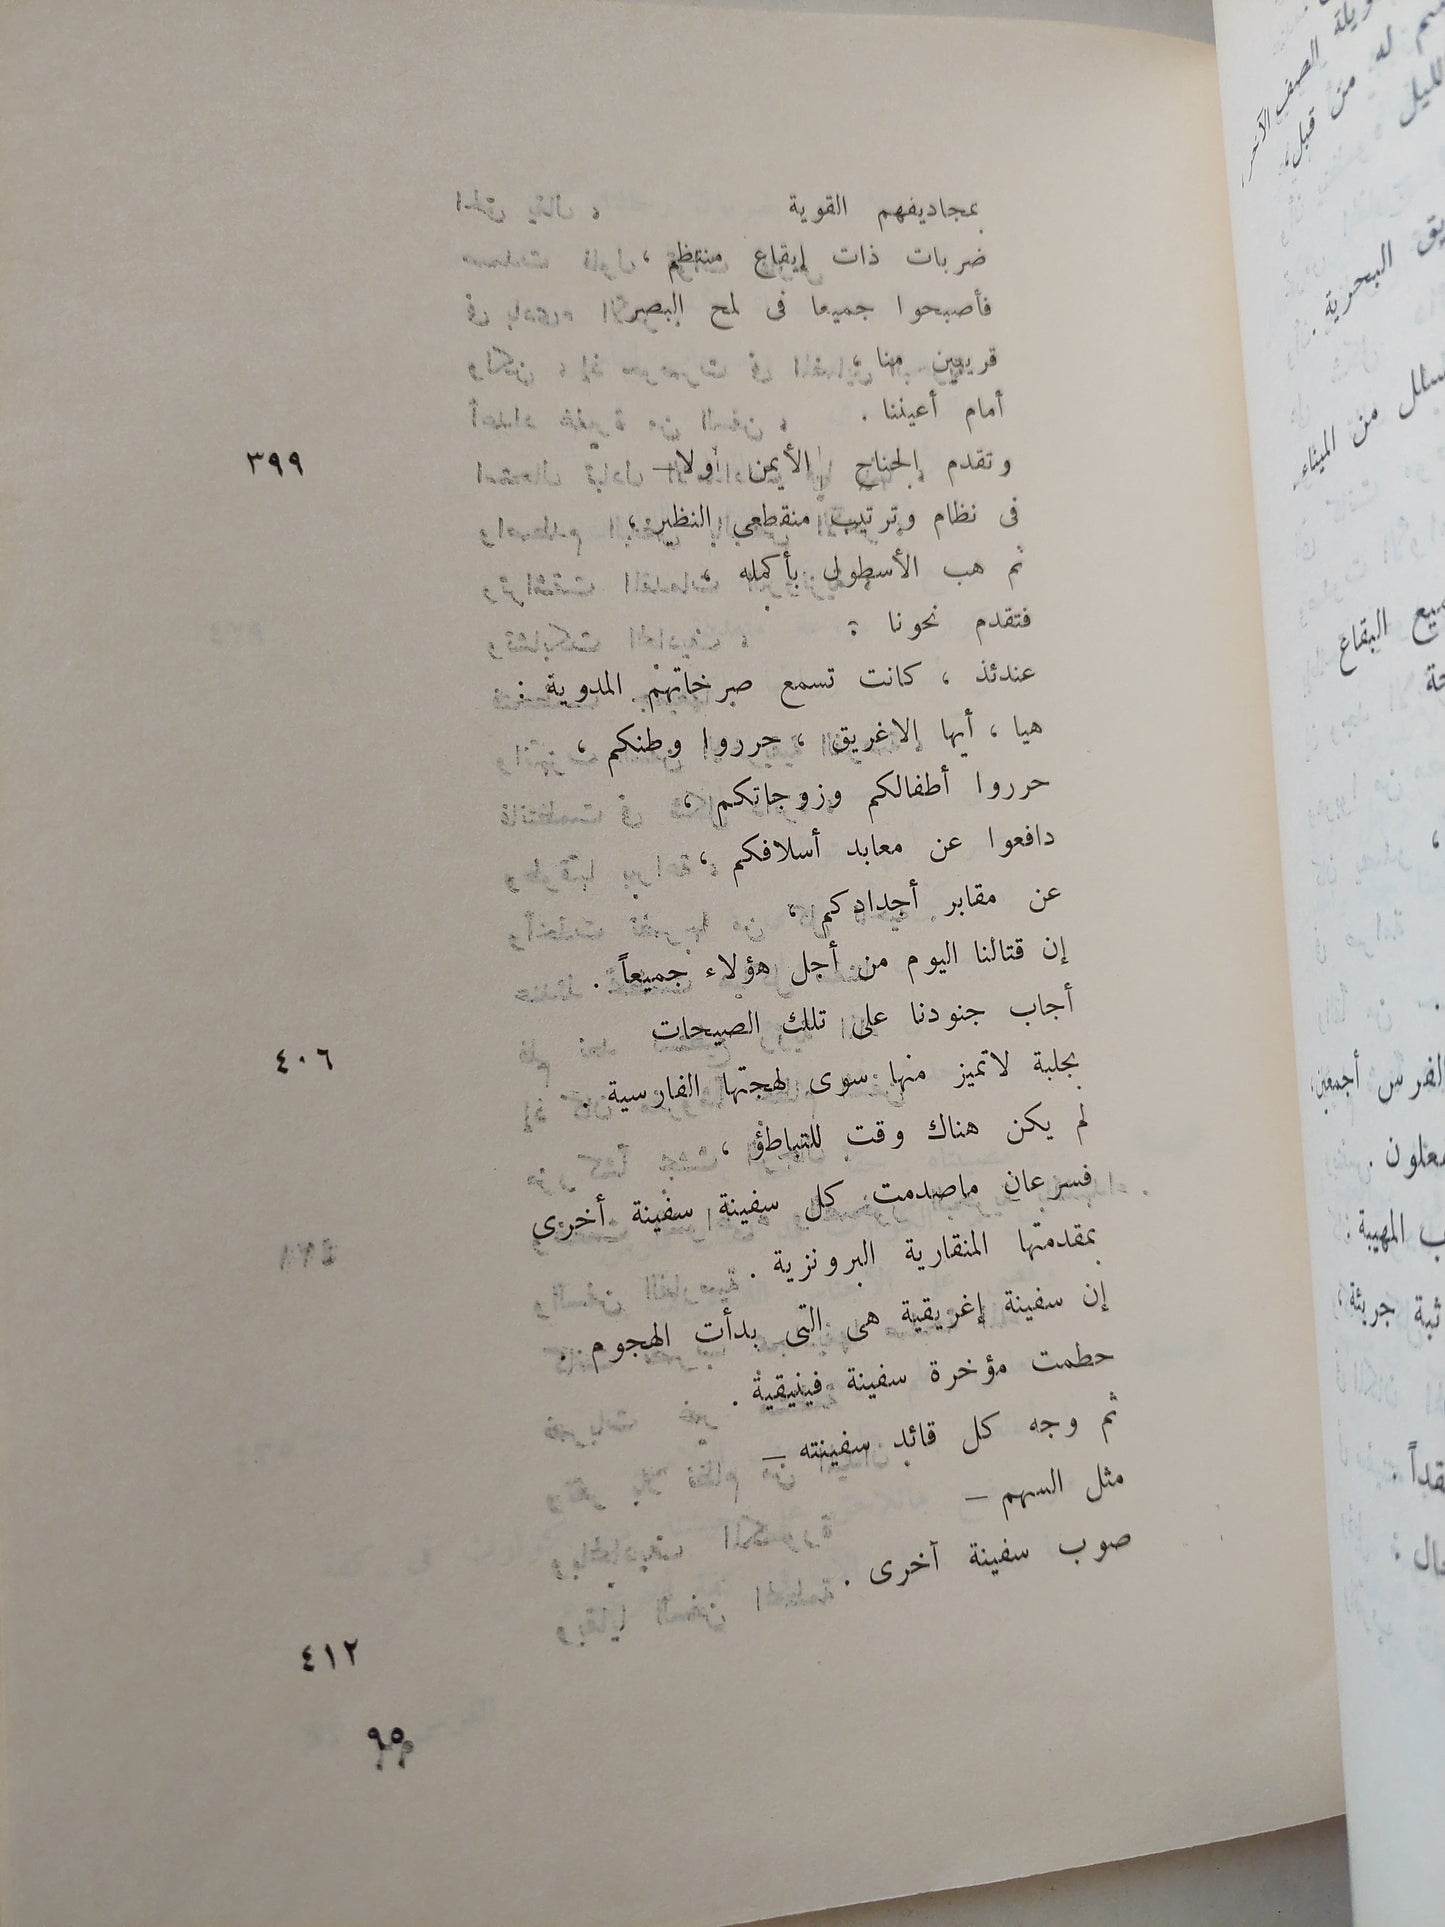 بمجاديفهم القوية
ضربات ذات إيقاع منتظم ،
فأصبحوا جميعا فى لمح البصر
قريبين منا ،
أمام أعيننا .
وتقدم الجناح الأيمن أولا – ٣٩٩
فى نظام وترتيب منقطعى النظير ،
ثم هب الأسطول بأكمله ،
فتقدم نحونا ؛
عندئذ ، كانت تسمع صرخاتهم المدوية :
هيا ، أيها الاغريق ، حرروا وطنكم ،
حرروا أطفالكم وزوجاتكم ،
دافعوا عن معابد أسلافكم ،
عن مقابر أجدادكم ،
إن قتالنا اليوم من أجل هؤلاء جميعاً .
أجاب جنودنا على تلك الصيحات
بجلبة لاتميز منها سوى لهجتها الفارسية . ٤٠٦
لم يكن هناك وقت للتباطؤ ،
فسرعان ماصدمت كل سفينة سفينة أخرى
بمقدمتها المنقارية البرونزية .
إن سفينة إغريقية هى التى بدأت الهجوم .
حطمت مؤخرة سفينة فينيقية .
ثم وجه كل قائد سفينته –
مثل السهم –
صوب سفينة آخرى .
٤١٢
٩٥
الصف
له من قبل،
البحرية .
من الميناء
البقاع
الفرس أجمعين،
المهيبة .
جريئة،